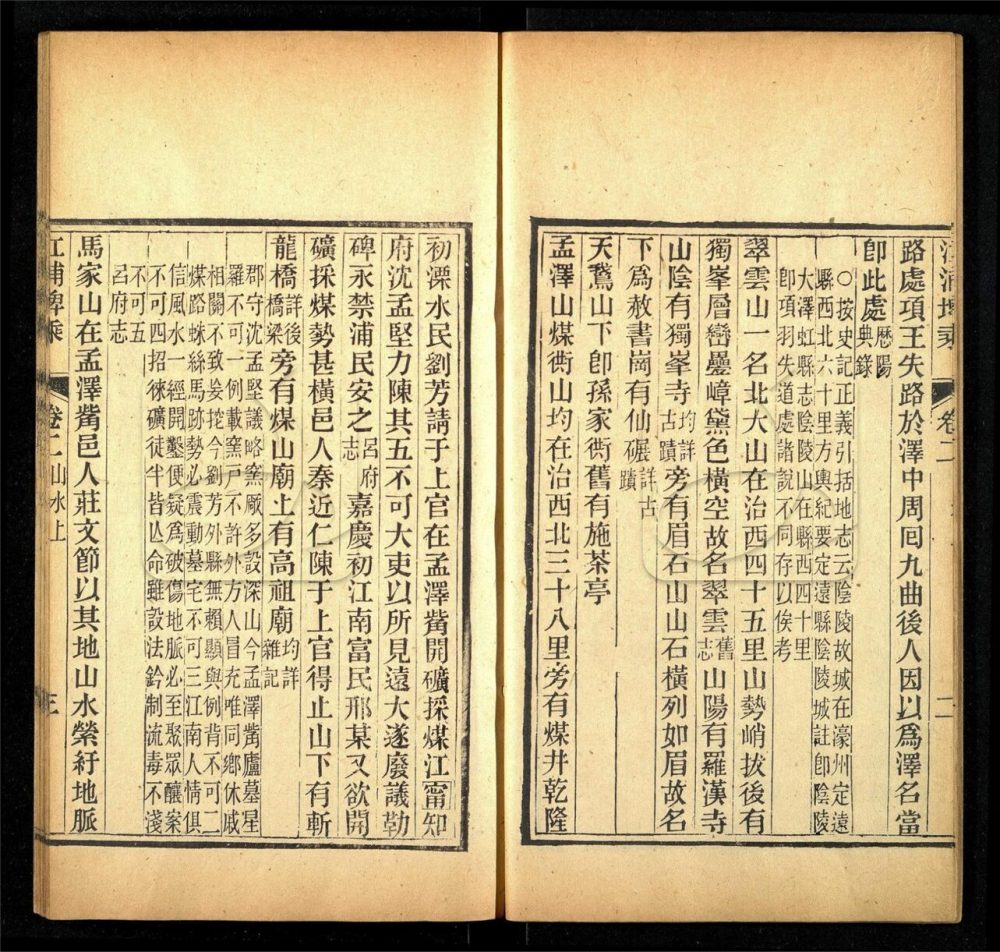 江浦埤乘 卷二 二
路處項王失路於澤中周囘九曲後人因以爲澤名當
卽此處歷陽典錄
○按史記正義引括地志云陰陵故城在濠州定遠
縣西北六十里方輿紀要定遠縣陰陵城註卽陰陵
大澤虹縣志陰陵山在縣西四十里
卽項羽失道處諸說不同存以俟考
翠雲山一名北大山在治西四十五里山勢峭拔後有
獨峯層巒疊嶂黛色橫空故名翠雲舊志山陽有羅漢寺
山陰有獨峯寺均詳古蹟旁有眉石山山石橫列如眉故名
下爲赦書崗有仙碾詳古蹟
天鵞山下卽孫家衖舊有施茶亭
孟澤山煤衖山均在治西北三十八里旁有煤井乾隆
初溧水民劉芳請于上官在孟澤觜開礦採煤江甯知
府沈孟堅力陳其五不可大吏以所見遠大遂廢議勒
碑永禁浦民安之呂府志嘉慶初江南富民邢某又欲開
礦採煤勢甚橫邑人秦近仁陳于上官得止山下有斬
龍橋詳後橋梁旁有煤山廟上有高祖廟均詳雜記
郡守沈孟堅議略窯厰多設深山今孟澤觜廬墓星
羅不可一例載窯戸不許外方人冒充唯同鄉休戚
相關不致妄挖今劉芳外縣無賴顯與例背不可二
煤路蛛絲馬跡勢必震動墓宅不可三江南人情俱
信風水一經開鑿便疑爲破傷地脈必至聚眾釀案
不可四招徠礦徒半皆亾命雖設法鈐制流毒不淺
不可五
呂府志
馬家山在孟澤觜邑人莊文節以其地山水縈紆地脈
江浦埤乘 卷二 山水上 三